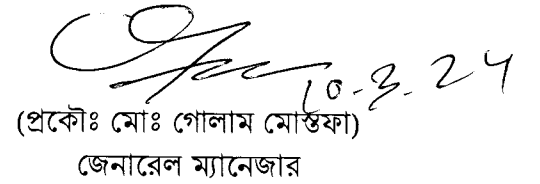 10-3-24
(প্রকৌঃ মোঃ গোলাম মোস্তফা)
জেনারেল ম্যানেজার